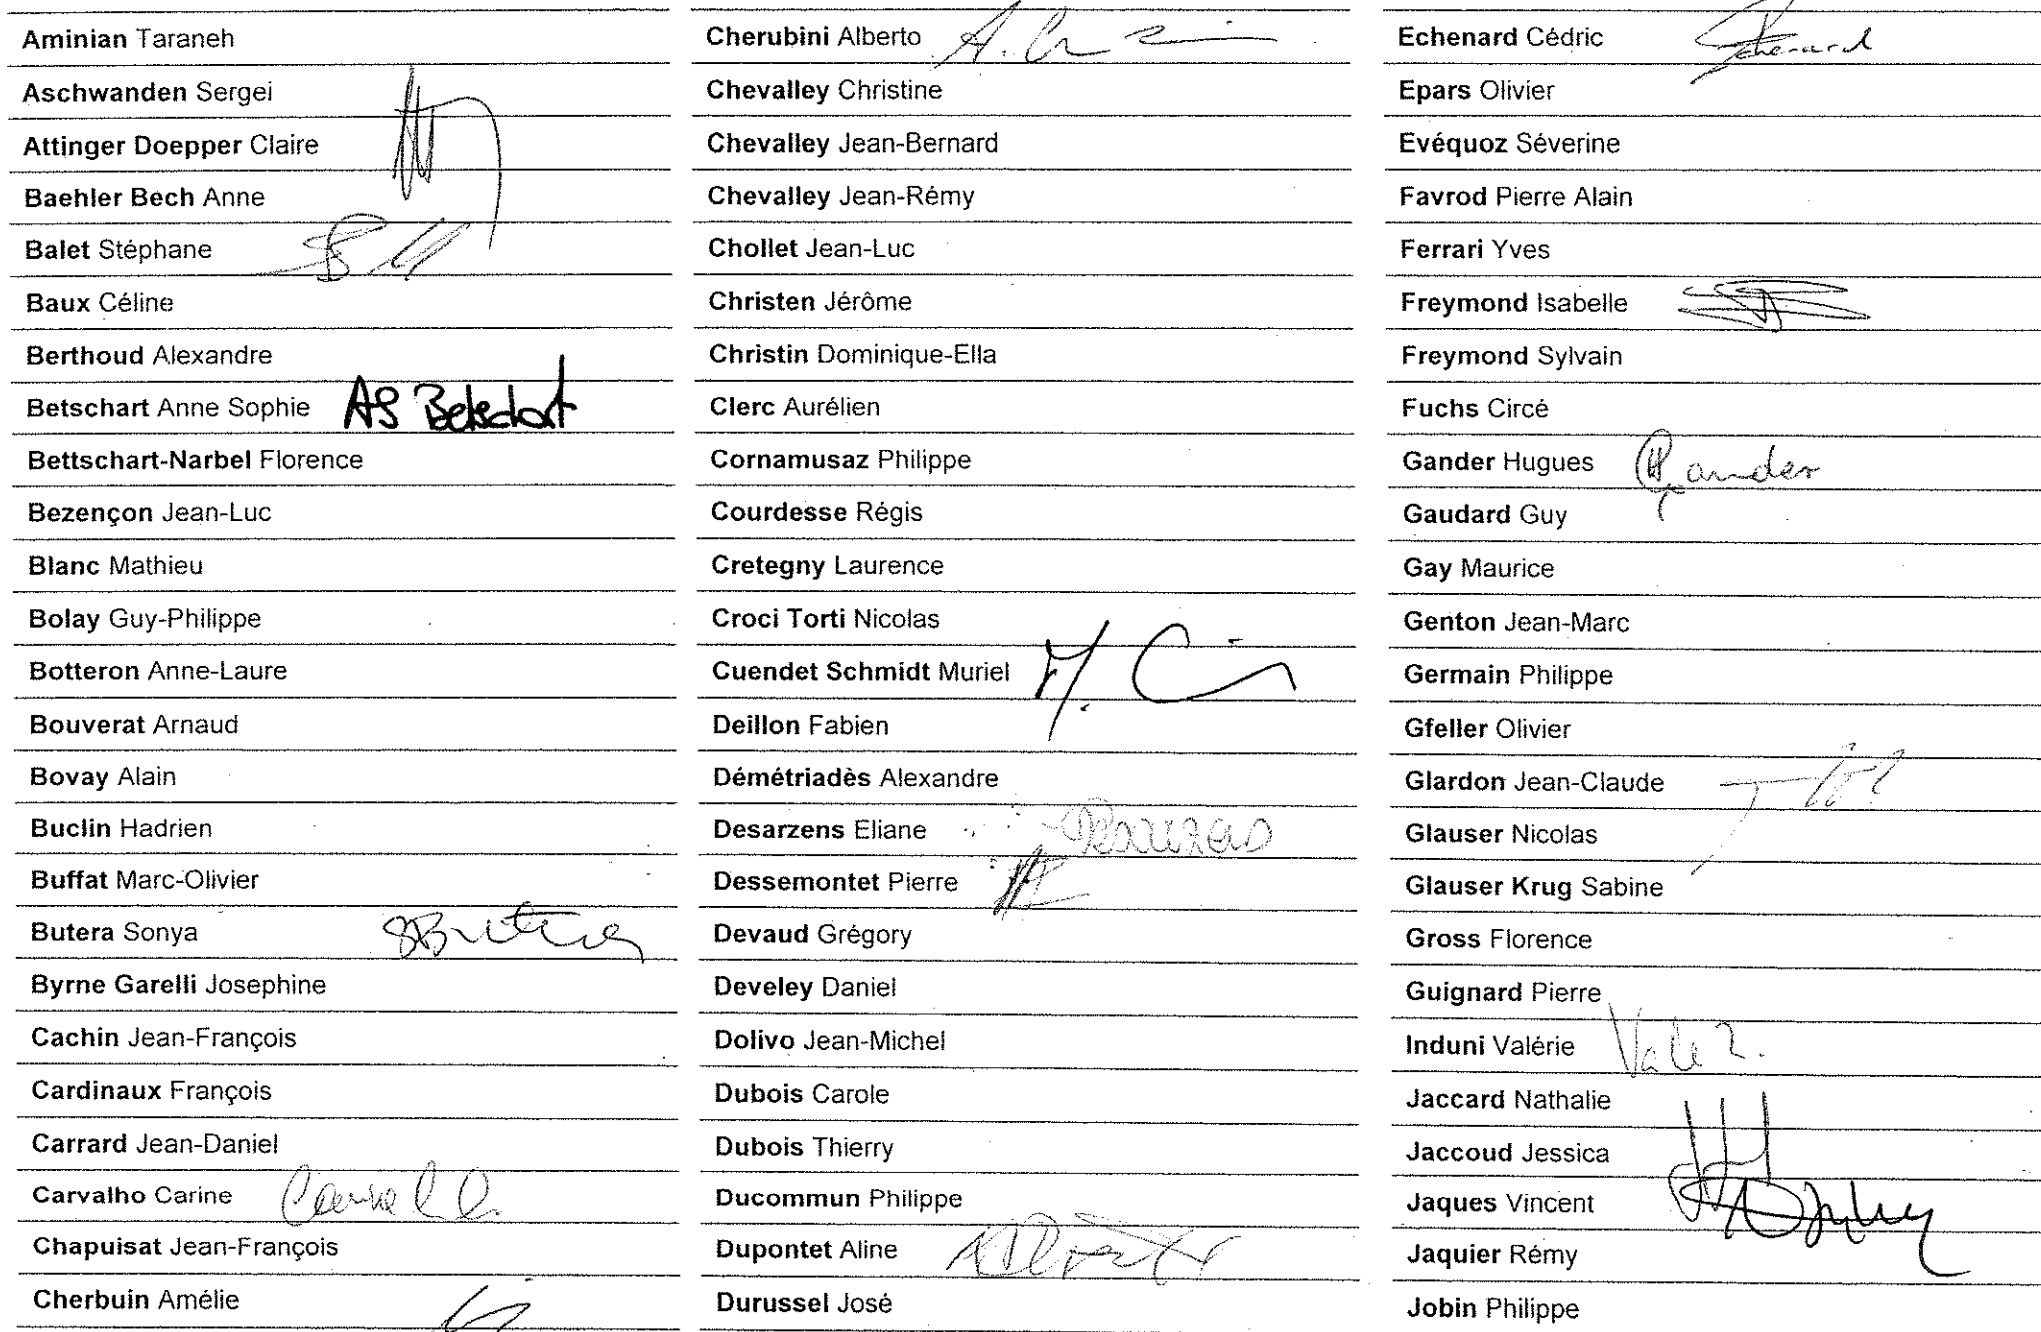 Aminian Taraneh
Aschwanden Sergei
Attinger Doepper Claire
Baehler Bech Anne
Balet Stéphane
Baux Céline
Berthoud Alexandre
Betschart Anne Sophie AS Betschart
Bettschart-Narbel Florence
Bezençon Jean-Luc
Blanc Mathieu
Bolay Guy-Philippe
Botteron Anne-Laure
Bouverat Arnaud
Bovay Alain
Buclin Hadrien
Buffat Marc-Olivier
Butera Sonya SButera
Byrne Garelli Josephine
Cachin Jean-François
Cardinaux François
Carrard Jean-Daniel
Carvalho Carine
Chapuisat Jean-François
Cherbuin Amélie
Cherubini Alberto
Chevalley Christine
Chevalley Jean-Bernard
Chevalley Jean-Rémy
Chollet Jean-Luc
Christen Jérôme
Christin Dominique-Ella
Clerc Aurélien
Cornamusaz Philippe
Courdesse Régis
Cretegny Laurence
Croci Torti Nicolas
Cuendet Schmidt Muriel
Deillon Fabien
Démétriadès Alexandre
Desarzens Eliane
Dessemontet Pierre
Devaud Grégory
Develey Daniel
Dolivo Jean-Michel
Dubois Carole
Dubois Thierry
Ducommun Philippe
Dupontet Aline
Durussel José
Echenard Cédric Echenard
Epars Olivier
Evéquoz Séverine
Favrod Pierre Alain
Ferrari Yves
Freymond Isabelle
Freymond Sylvain
Fuchs Circé
Gander Hugues HGander
Gaudard Guy
Gay Maurice
Genton Jean-Marc
Germain Philippe
Gfeller Olivier
Glardon Jean-Claude
Glauser Nicolas
Glauser Krug Sabine
Gross Florence
Guignard Pierre
Induni Valérie
Jaccard Nathalie
Jaccoud Jessica
Jaques Vincent
Jaquier Rémy
Jobin Philippe